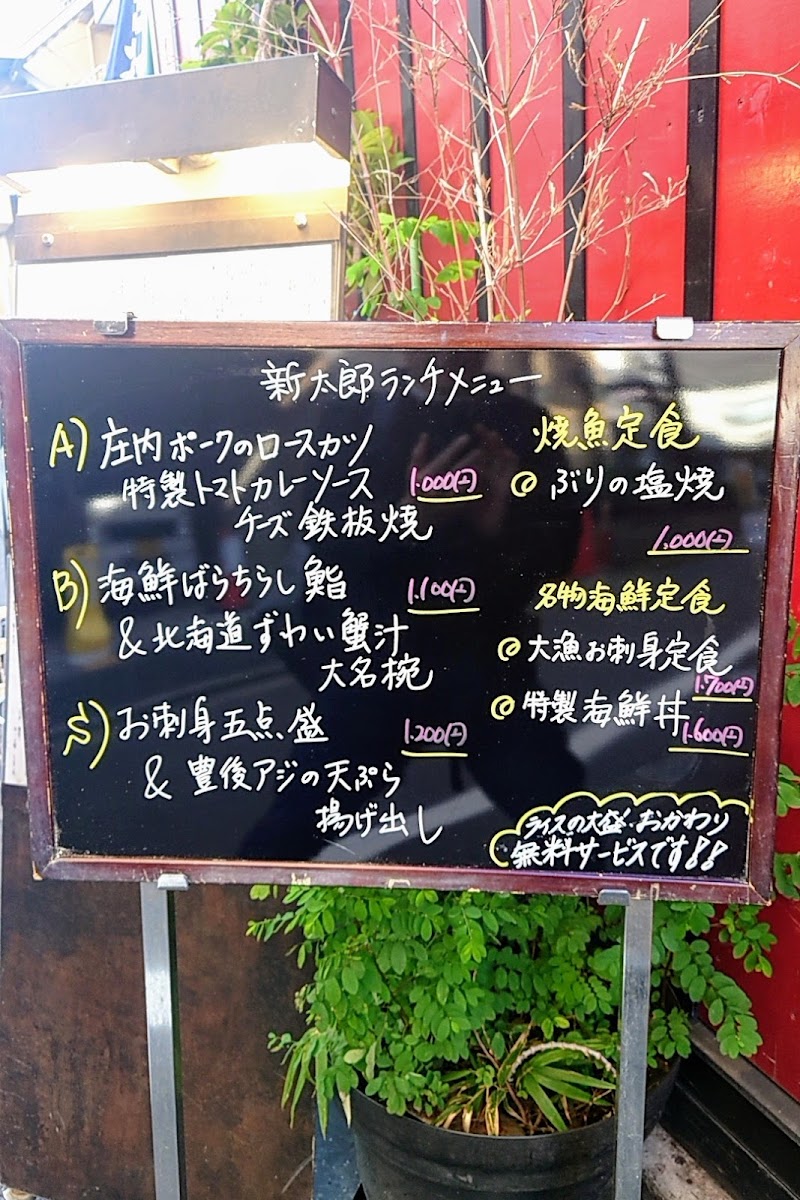 新太郎ランチメニュー
A) 庄内ポークのロースカツ
特製トマトカレーソース 1.000(土)
チーズ鉄板焼
B) 海鮮ばらちらし鮨 1.100(土)
&北海道ずわい蟹汁
大名椀
S) お刺身五点盛 1.200(土)
& 豊後アジの天ぷら
揚げ出し
焼魚定食
◎ ぶりの塩焼
1.000(土)
名物海鮮定食
◎ 大漁お刺身定食
1.700(土)
◎ 特製海鮮丼
1.600(土)
ライスの大盛・おかわり
無料サービスです!!